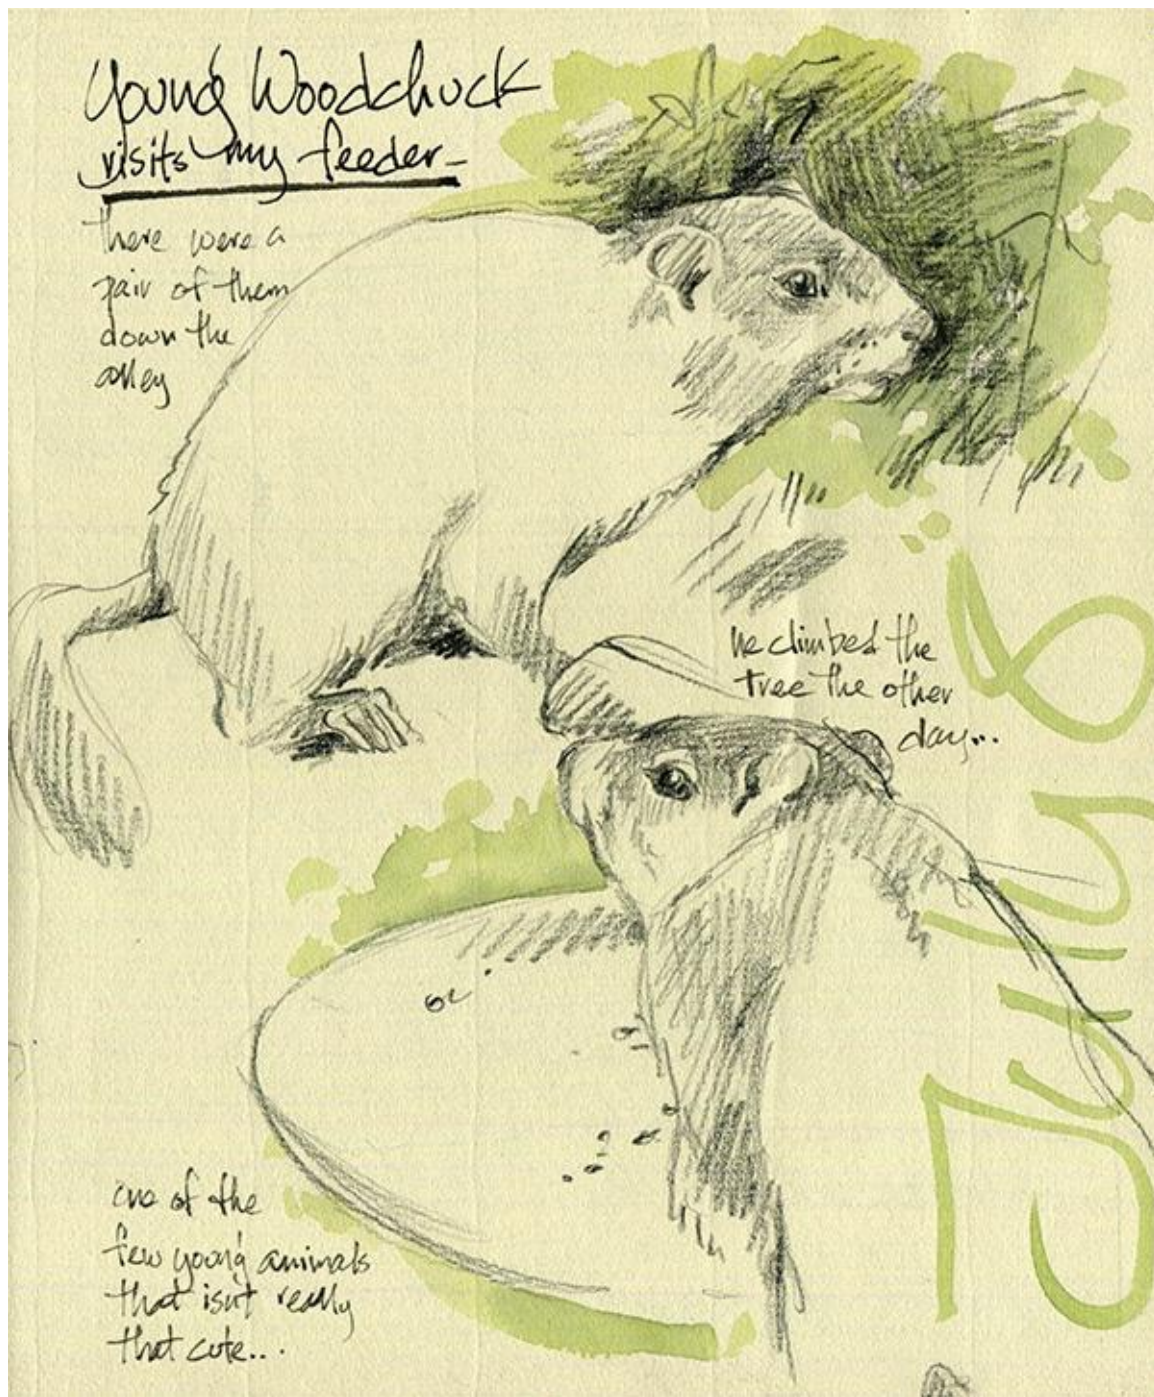 Young Woodchuck
visits my feeder-
there were a
pair of them
down the
alley
he climbed the
tree the other
day...
July 8
one of the
few young animals
that isn't really
that cute...